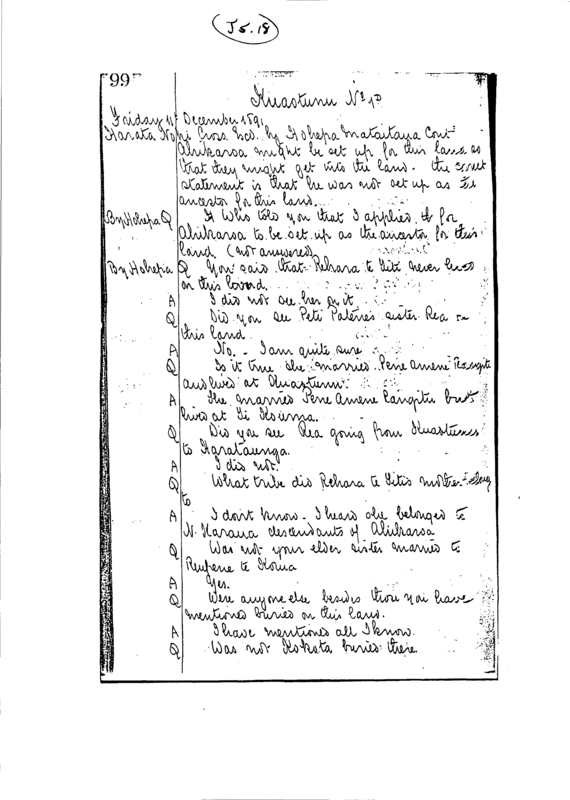 J5.18
99
Kuaotunu No 1D
Friday 11 December 1891
Harata Nohi Cross Exd. by Hohepa Mataitaua Cont
Ahikaroa might be set up for this land so
that they might get into the land. The correct
statement is that he was not set up as the
ancestor for this land.
By Hohepa Q Who told you that I applied for
Ahikaroa to be set up as the ancestor for this
land (not answered)
By Hohepa Q You said that Rehara te Titi never lived
on this land.
A I did not see her on it
Q Did you see Peti Patene's sister Rea on
this land
A No. - I am quite sure
Q Is it true she married Pene Amene Rangitu
and lived at Kuaotunu
A She married Pene Amene Rangitu but
lived at Ti Kouma.
Q Did you see Rea going from Kuaotunu
to Harataunga.
A I did not.
Q What tribe did Rehara te Titis mother belong
to
A I don't know - I heard she belonged to
N. Karaua descendants of Ahikaroa
Q Was not your elder sister married to
Reupene te
A Yes.
Q Were anyone else besides those you have
mentioned buried on this land.
A I have mentioned all I know.
Q Was not Kokota buried there